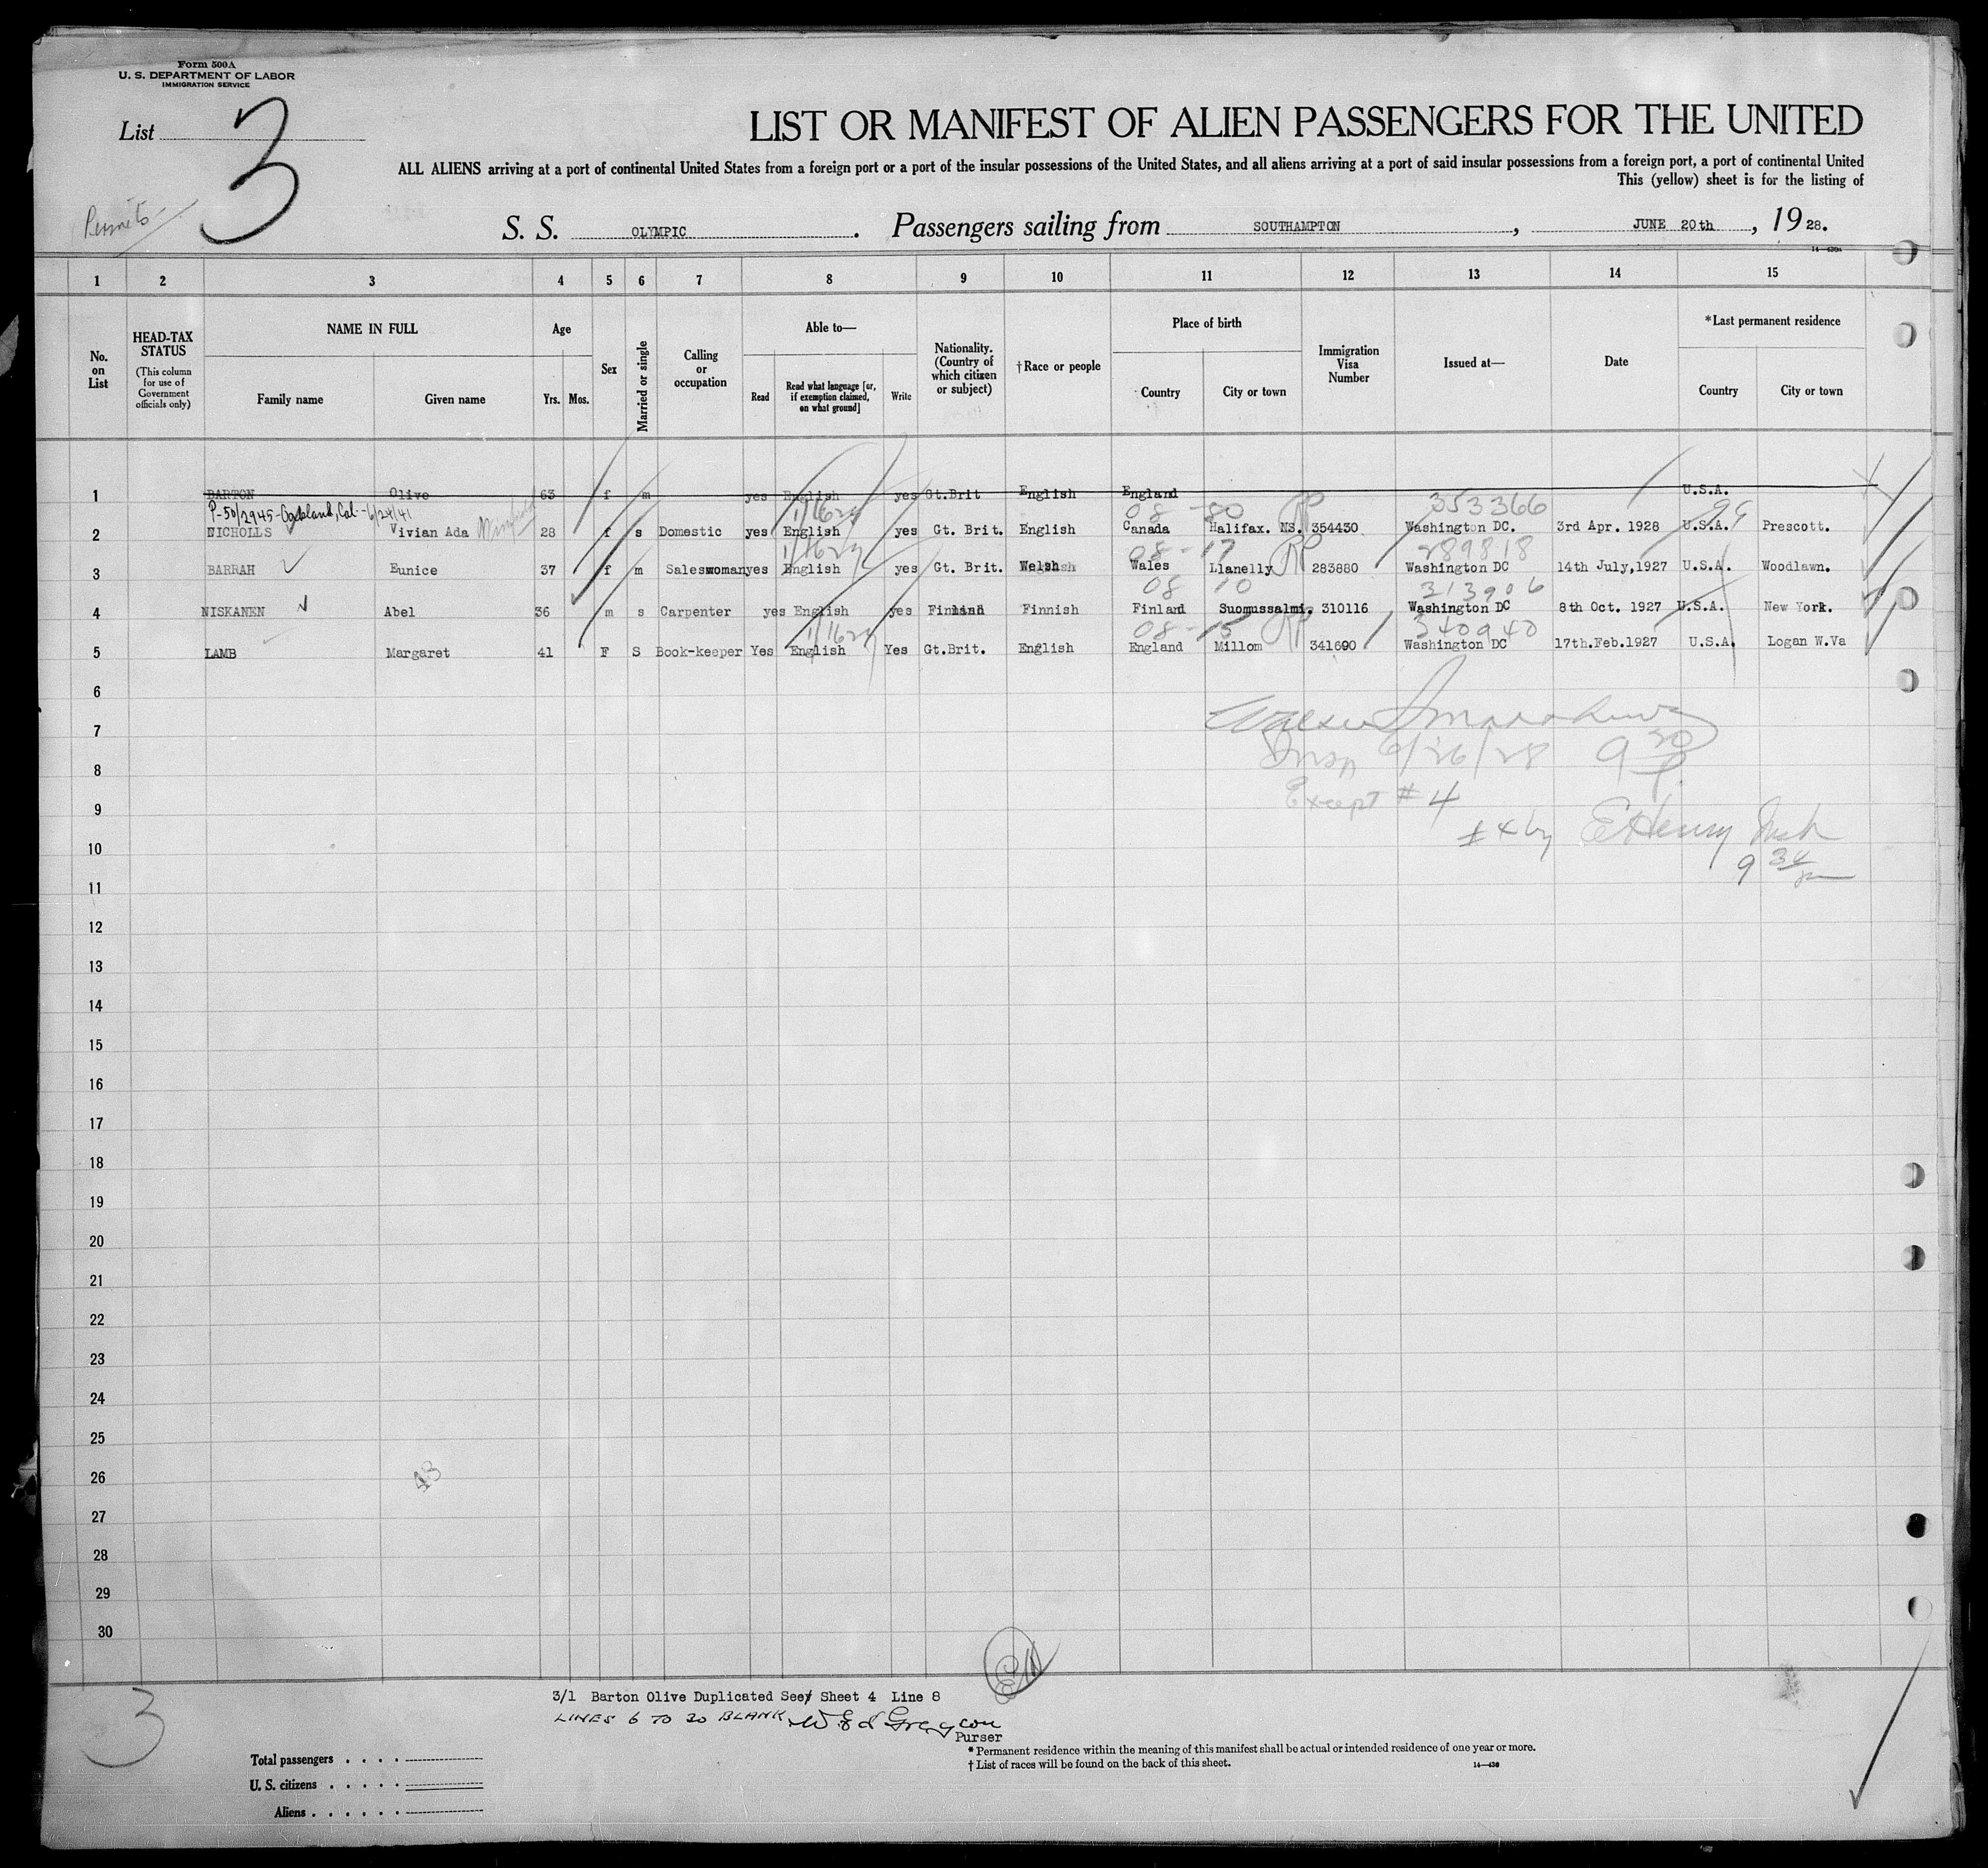 Form 500A
U. S. DEPARTMENT OF LABOR
IMMIGRATION SERVICE
List 3
LIST OR MANIFEST OF ALIEN PASSENGERS FOR THE UNITED
ALL ALIENS arriving at a port of continental United States from a foreign port or a port of the insular possessions of the United States, and all aliens arriving at a port of said insular possessions from a foreign port, a port of continental United
This (yellow) sheet is for the listing of
Permits
S. S. OLYMPIC. Passengers sailing from SOUTHAMPTON, JUNE 20th, 1928.
1 2 3 4 5 6 7 8 9 10 11 12 13 14 15
No. on List
HEAD-TAX STATUS (This column for use of Government officials only)
NAME IN FULL
Family name
Given name
Age
Yrs. Mos.
Sex
Married or single
Calling or occupation
Able to—
Read
Read what language [or, if exemption claimed, on what ground]
Write
Nationality. (Country of which citizen or subject)
†Race or people
Place of birth
Country
City or town
Immigration Visa Number
Issued at—
Date
*Last permanent residence
Country
City or town
1 BARTON Olive 63 f m yes English yes Gt.Brit English England U.S.A.
P-50/2945-Oakland, Cal.-6/24/41 1/1629 08 -80 RP 353366 99
2 NICHOLLS Vivian Ada 28 f s Domestic yes English yes Gt. Brit. English Canada Halifax. NS. 354430 Washington DC. 3rd Apr. 1928 U.S.A. Prescott.
08-17 RP 289818
3 BARRAH Eunice 37 f m Saleswoman yes English yes Gt. Brit. Welsh Wales Llanelly 283880 Washington DC 14th July,1927 U.S.A. Woodlawn.
08 10 313906
4 NISKANEN Abel 36 m s Carpenter yes English yes Finland Finnish Finland Suomussalmi. 310116 Washington DC 8th Oct. 1927 U.S.A. New York.
08-15 RP 340940
5 LAMB Margaret 41 F S Book-keeper Yes English Yes Gt.Brit. English England Millom 341690 Washington DC 17th.Feb.1927 U.S.A. Logan W.Va
6
7
Insp 6/26/28 9 30 P.
8
Except #4
9
#4 by E Henry Insp
10
9 34 pm
11
12
13
14
15
16
17
18
19
20
21
22
23
24
25
26
48
27
28
29
30
3/1 Barton Olive Duplicated See Sheet 4 Line 8
LINES 6 TO 30 BLANK
Purser
3
Total passengers . . . .
U. S. citizens . . . . .
Aliens . . . . . .
* Permanent residence within the meaning of this manifest shall be actual or intended residence of one year or more.
† List of races will be found on the back of this sheet.
14—430